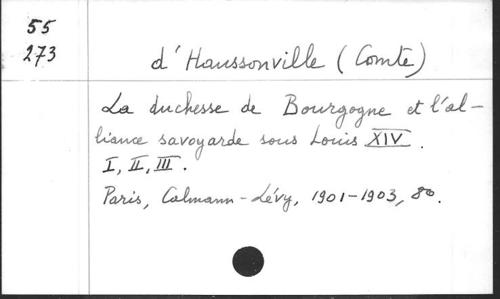 55
273
d'Haussonville (Comte)
La duchesse de Bourgogne et l'al-
liance savoyarde sous Louis XIV.
I, II, III.
Paris, Calmann-Lévy, 1901-1903, 8o.